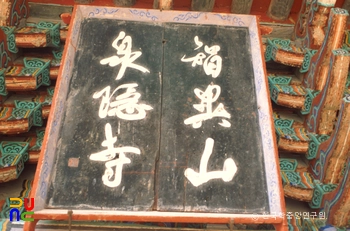 智異山
泉隱寺
한국학중앙연구원